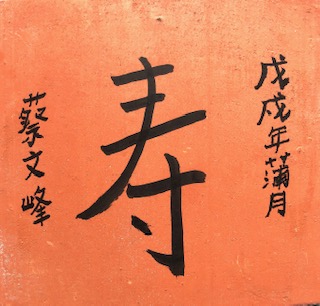 戊戌年蒲月
寿
蔡文峰